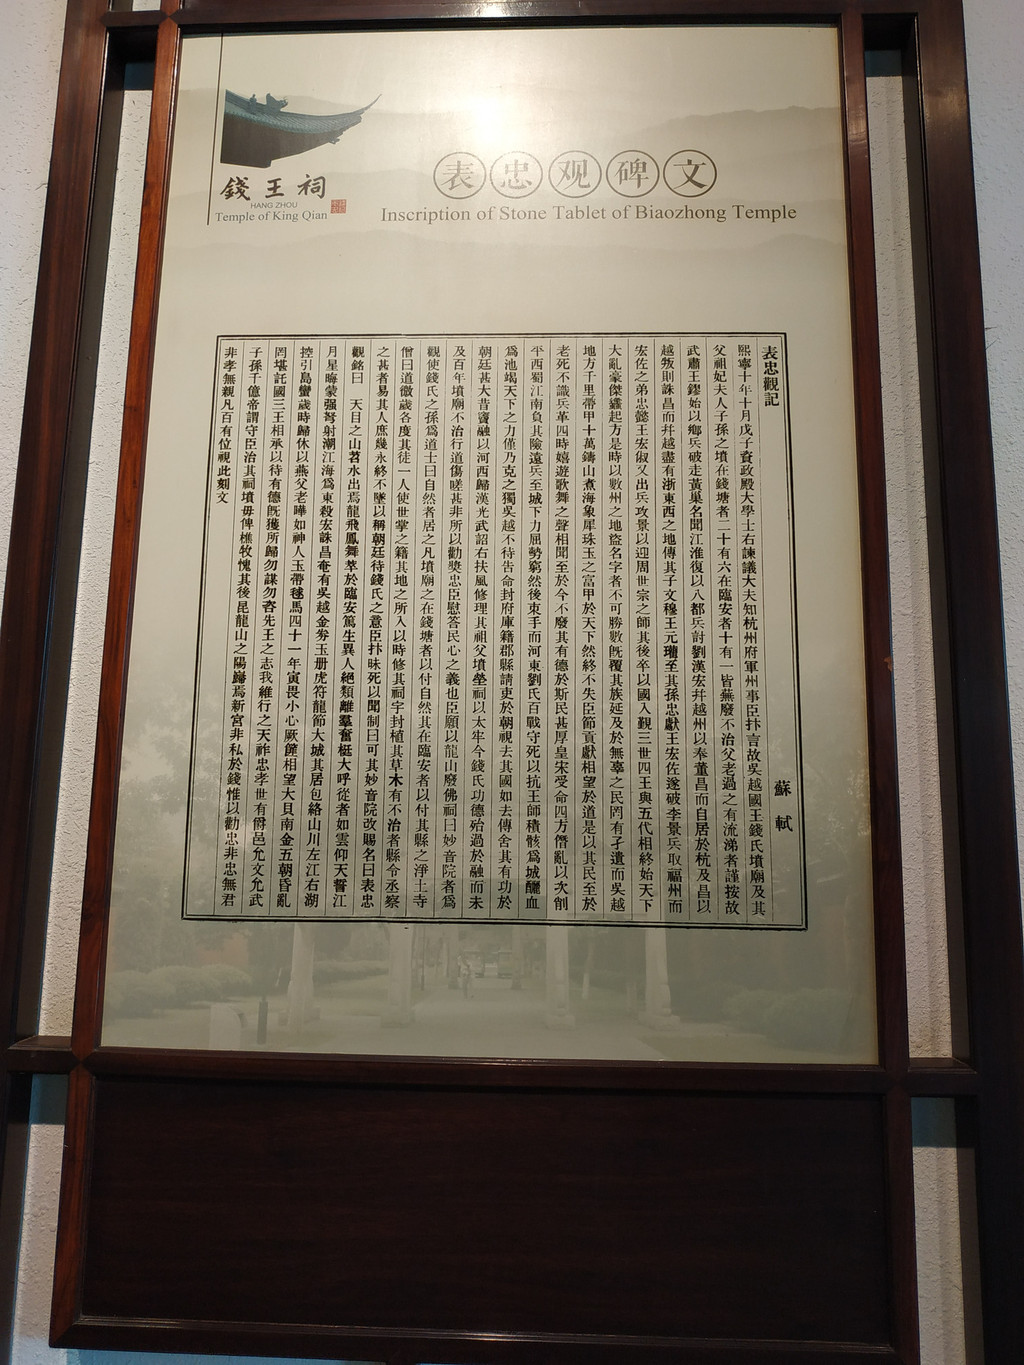 錢王祠
HANG ZHOU
Temple of King Qian
表忠观碑文
Inscription of Stone Tablet of Biaozhong Temple
表忠觀記
蘇軾
熙寧十年十月戊子資政殿大學士右諫議大夫知杭州府軍州事臣抃言故吳越國王錢氏墳廟及其
父祖妃夫人子孫之墳在錢塘者二十有六在臨安者十有一皆蕪廢不治父老過之有流涕者謹按故
武肅王鏐始以鄉兵破走黃巢名聞江淮復以八都兵討劉漢宏幷越州以奉董昌而自居於杭及昌以
越叛則誅昌而幷越盡有浙東西之地傳其子文穆王元瓘至其孫忠獻王宏佐遂破李景兵取福州而
宏佐之弟忠懿王宏俶又出兵攻景以迎周世宗之師其後卒以國入覲三世四王與五代相終始天下
大亂豪傑蠭起方是時以數州之地盜名字者不可勝數旣覆其族延及於無辜之民罔有孑遺而吳越
地方千里帶甲十萬鑄山煮海象犀珠玉之富甲於天下然終不失臣節貢獻相望於道是以其民至於
老死不識兵革四時嬉遊歌舞之聲相聞至於今不廢其有德於斯民甚厚皇宋受命四方僭亂以次削
平西蜀江南負其險遠兵至城下力屈勢窮然後束手而河東劉氏百戰守死以抗王師積骸爲城釃血
爲池竭天下之力僅乃克之獨吳越不待告命封府庫籍郡縣請吏於朝視去其國如去傳舍其有功於
朝廷甚大昔竇融以河西歸漢光武詔右扶風修理其祖父墳塋祠以太牢今錢氏功德殆過於融而未
及百年墳廟不治行道傷嗟甚非所以勸奬忠臣慰答民心之義也臣願以龍山廢佛祠曰妙音院者爲
觀使錢氏之孫爲道士曰自然者居之凡墳廟之在錢塘者以付自然其在臨安者以付其縣之淨土寺
僧曰道微歲各度其徒一人使世掌之籍其地之所入以時修其祠宇封植其草木有不治者縣令丞察
之甚者易其人庶幾永終不墜以稱朝廷待錢氏之意臣抃昧死以聞制曰可其妙音院改賜名曰表忠
觀銘曰　天目之山苕水出焉龍飛鳳舞萃於臨安篤生異人絕類離羣奮梃大呼從者如雲仰天誓江
月星晦蒙强弩射潮江海爲東殺宏誅昌奄有吳越金券玉册虎符龍節大城其居包絡山川左江右湖
控引島蠻歲時歸休以燕父老曄如神人玉帶毬馬四十一年寅畏小心厥篚相望大貝南金五朝昏亂
罔堪託國三王相承以待有德旣獲所歸勿謀勿咨先王之志我維行之天祚忠孝世有爵邑允文允武
子孫千億帝謂守臣治其祠墳毋俾樵牧愧其後昆龍山之陽巋焉新宮非私於錢惟以勸忠非忠無君
非孝無親凡百有位視此刻文